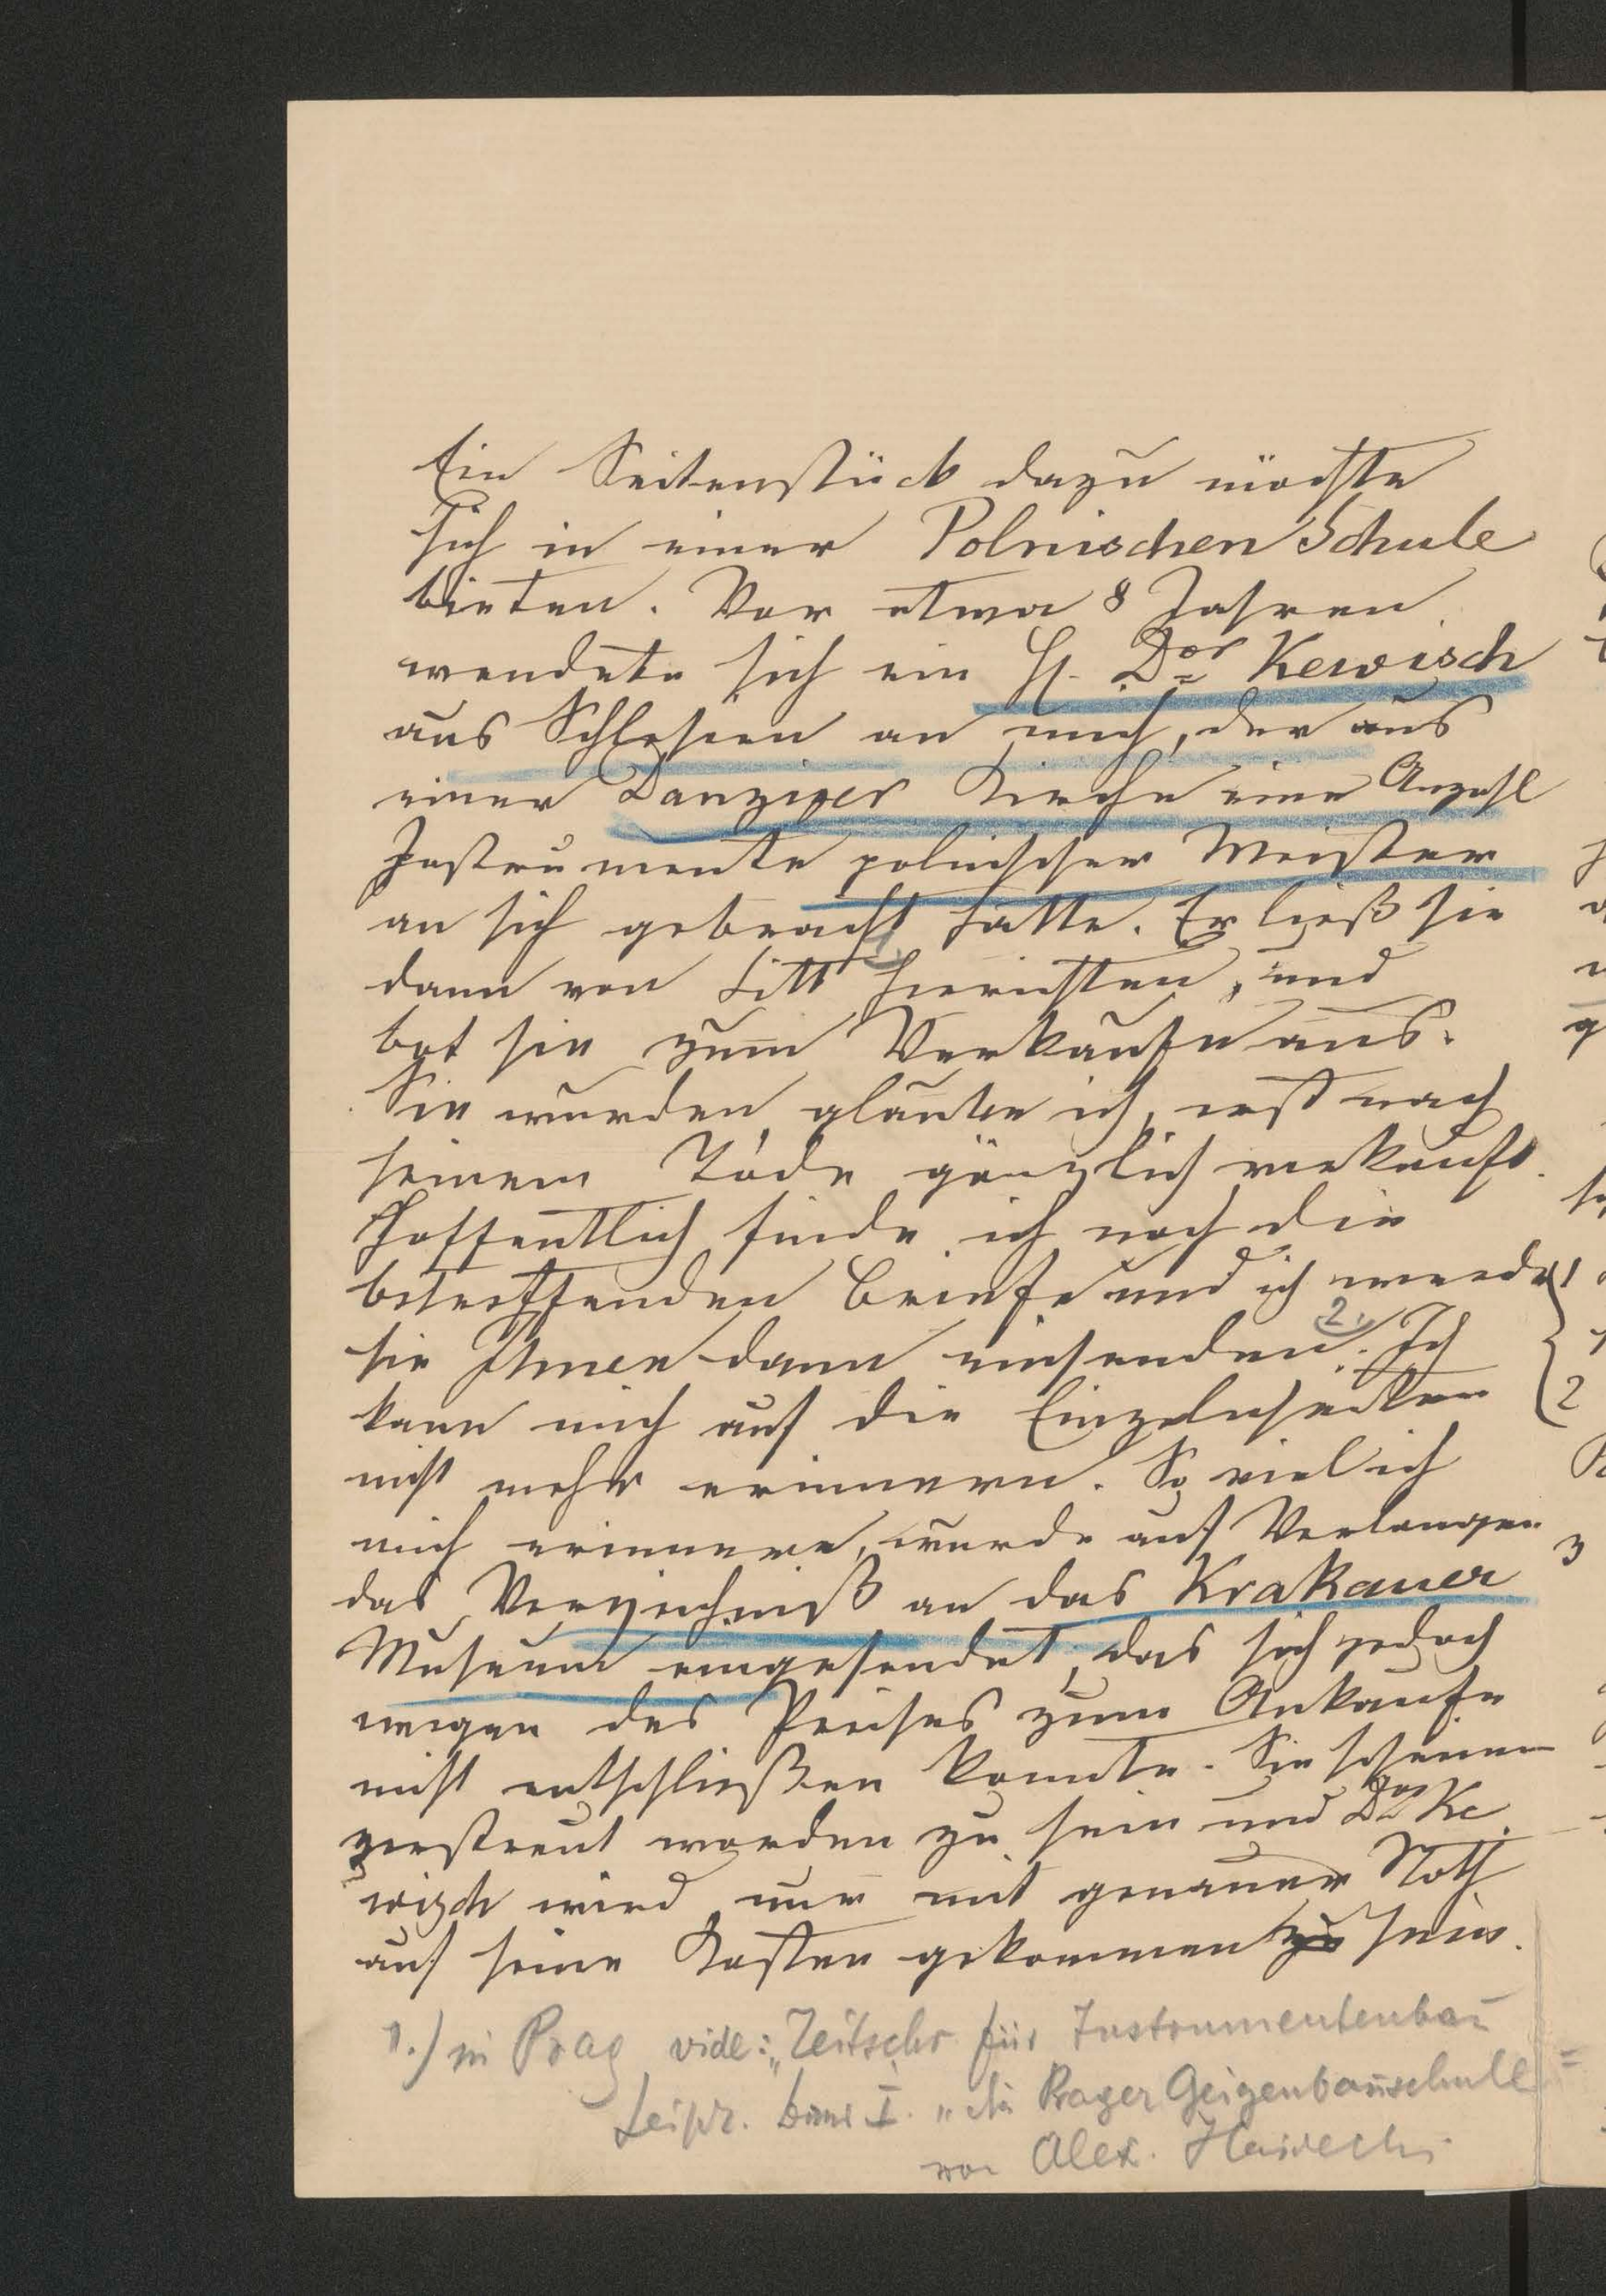 Ein Seitenstück dazu möchte
sich in einer Polnischen Schule
bieten. Vor etwa 8 Jahren
wendete sich ein H. Dor Kewisch
aus Schlesien an mich, der aus
einer Danziger Kirche eine Anzahl
Instrumente polnischer Meister
an sich gebracht hatte. Er ließ sie
dann von Sitt 1. herrichten, und
bot sie zum Verkaufe aus.
Sie wurden, glaube ich, erst nach
seinem Tode gänzlich verkauft.
Hoffentlich finde ich noch die
betreffenden Briefe und ich werde
sie Ihnen dann einsenden. 2. Ich
kann mich auf die Einzelnheiten
nicht mehr erinnern. So viel ich
mich erinnere, wurde auf Verlangen
das Verzeichniß an das Krakauer
Museum eingesendet, das sich jedoch
wegen des Preises zum Ankaufe
nicht entschließen konnte. Sie scheinen
zerstreut worden zu sein und Dor Ke
wisch wird nur mit genauer Noth
auf seine Kosten gekommen sein.
1.) in Prag vide: „Zeitschr für Instrumentenbau
Leipz. Band I. „die Prager Geigenbauschule
von Alex. Hajdecki